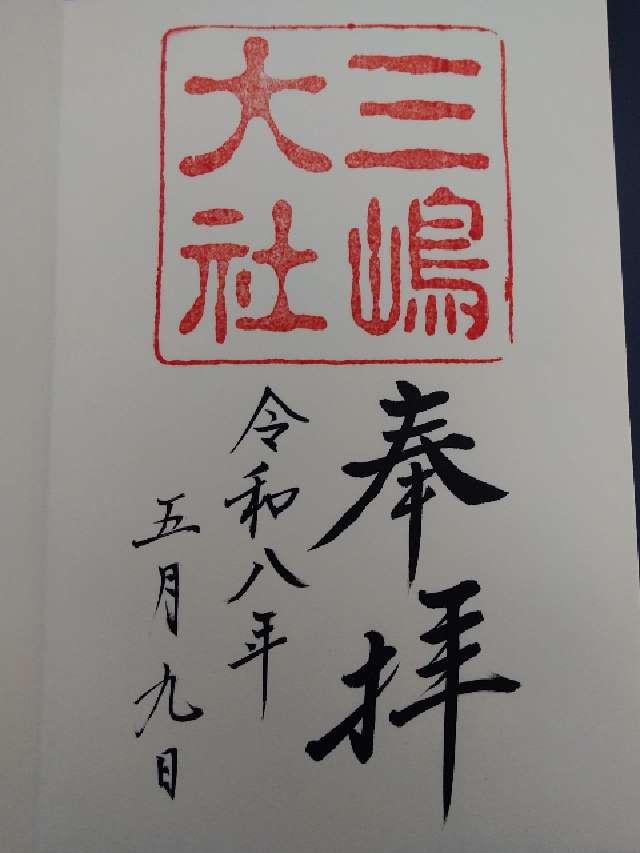 三嶋
大社
奉拝
令和八年
五月九日